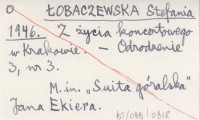 ŁOBACZEWSKA Stefania
1946. Z życia koncertowego
w Krakowie. – Odrodzenie
3, nr 3.
M.in. „Suita góralska"
Jana Ekiera.